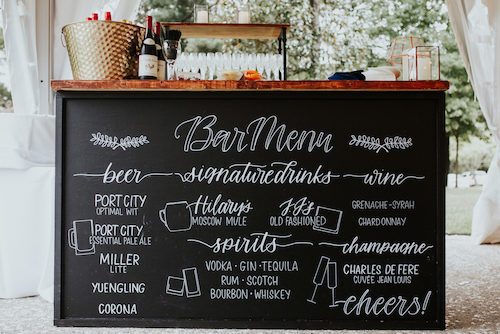 Bar Menu
beer
PORT CITY
OPTIMAL WIT
PORT CITY
ESSENTIAL PALE ALE
MILLER
LITE
YUENGLING
CORONA
signature drinks
Hilary's
MOSCOW MULE
JJ's
OLD FASHIONED
spirits
VODKA · GIN · TEQUILA
RUM · SCOTCH
BOURBON · WHISKEY
wine
GRENACHE-SYRAH
CHARDONNAY
champagne
CHARLES DE FERE
CUVÉE JEAN LOUIS
cheers!